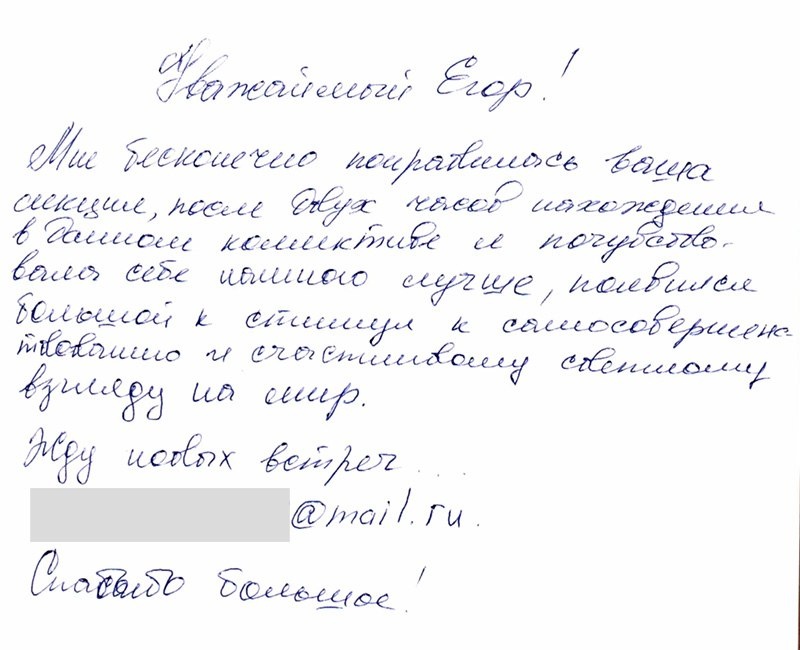 Уважаймый Егор!
Мне бесконечно понравилась ваша
лекция, после двух часов нахождения
в данном коллективе я почуство-
вала себе намного лучше, появился
большой к стимул к самосовершенс-
твованию и счастливому светлому
взгляду на мир.
Жду новых встреч ...
@mail.ru.
Спасибо большое!